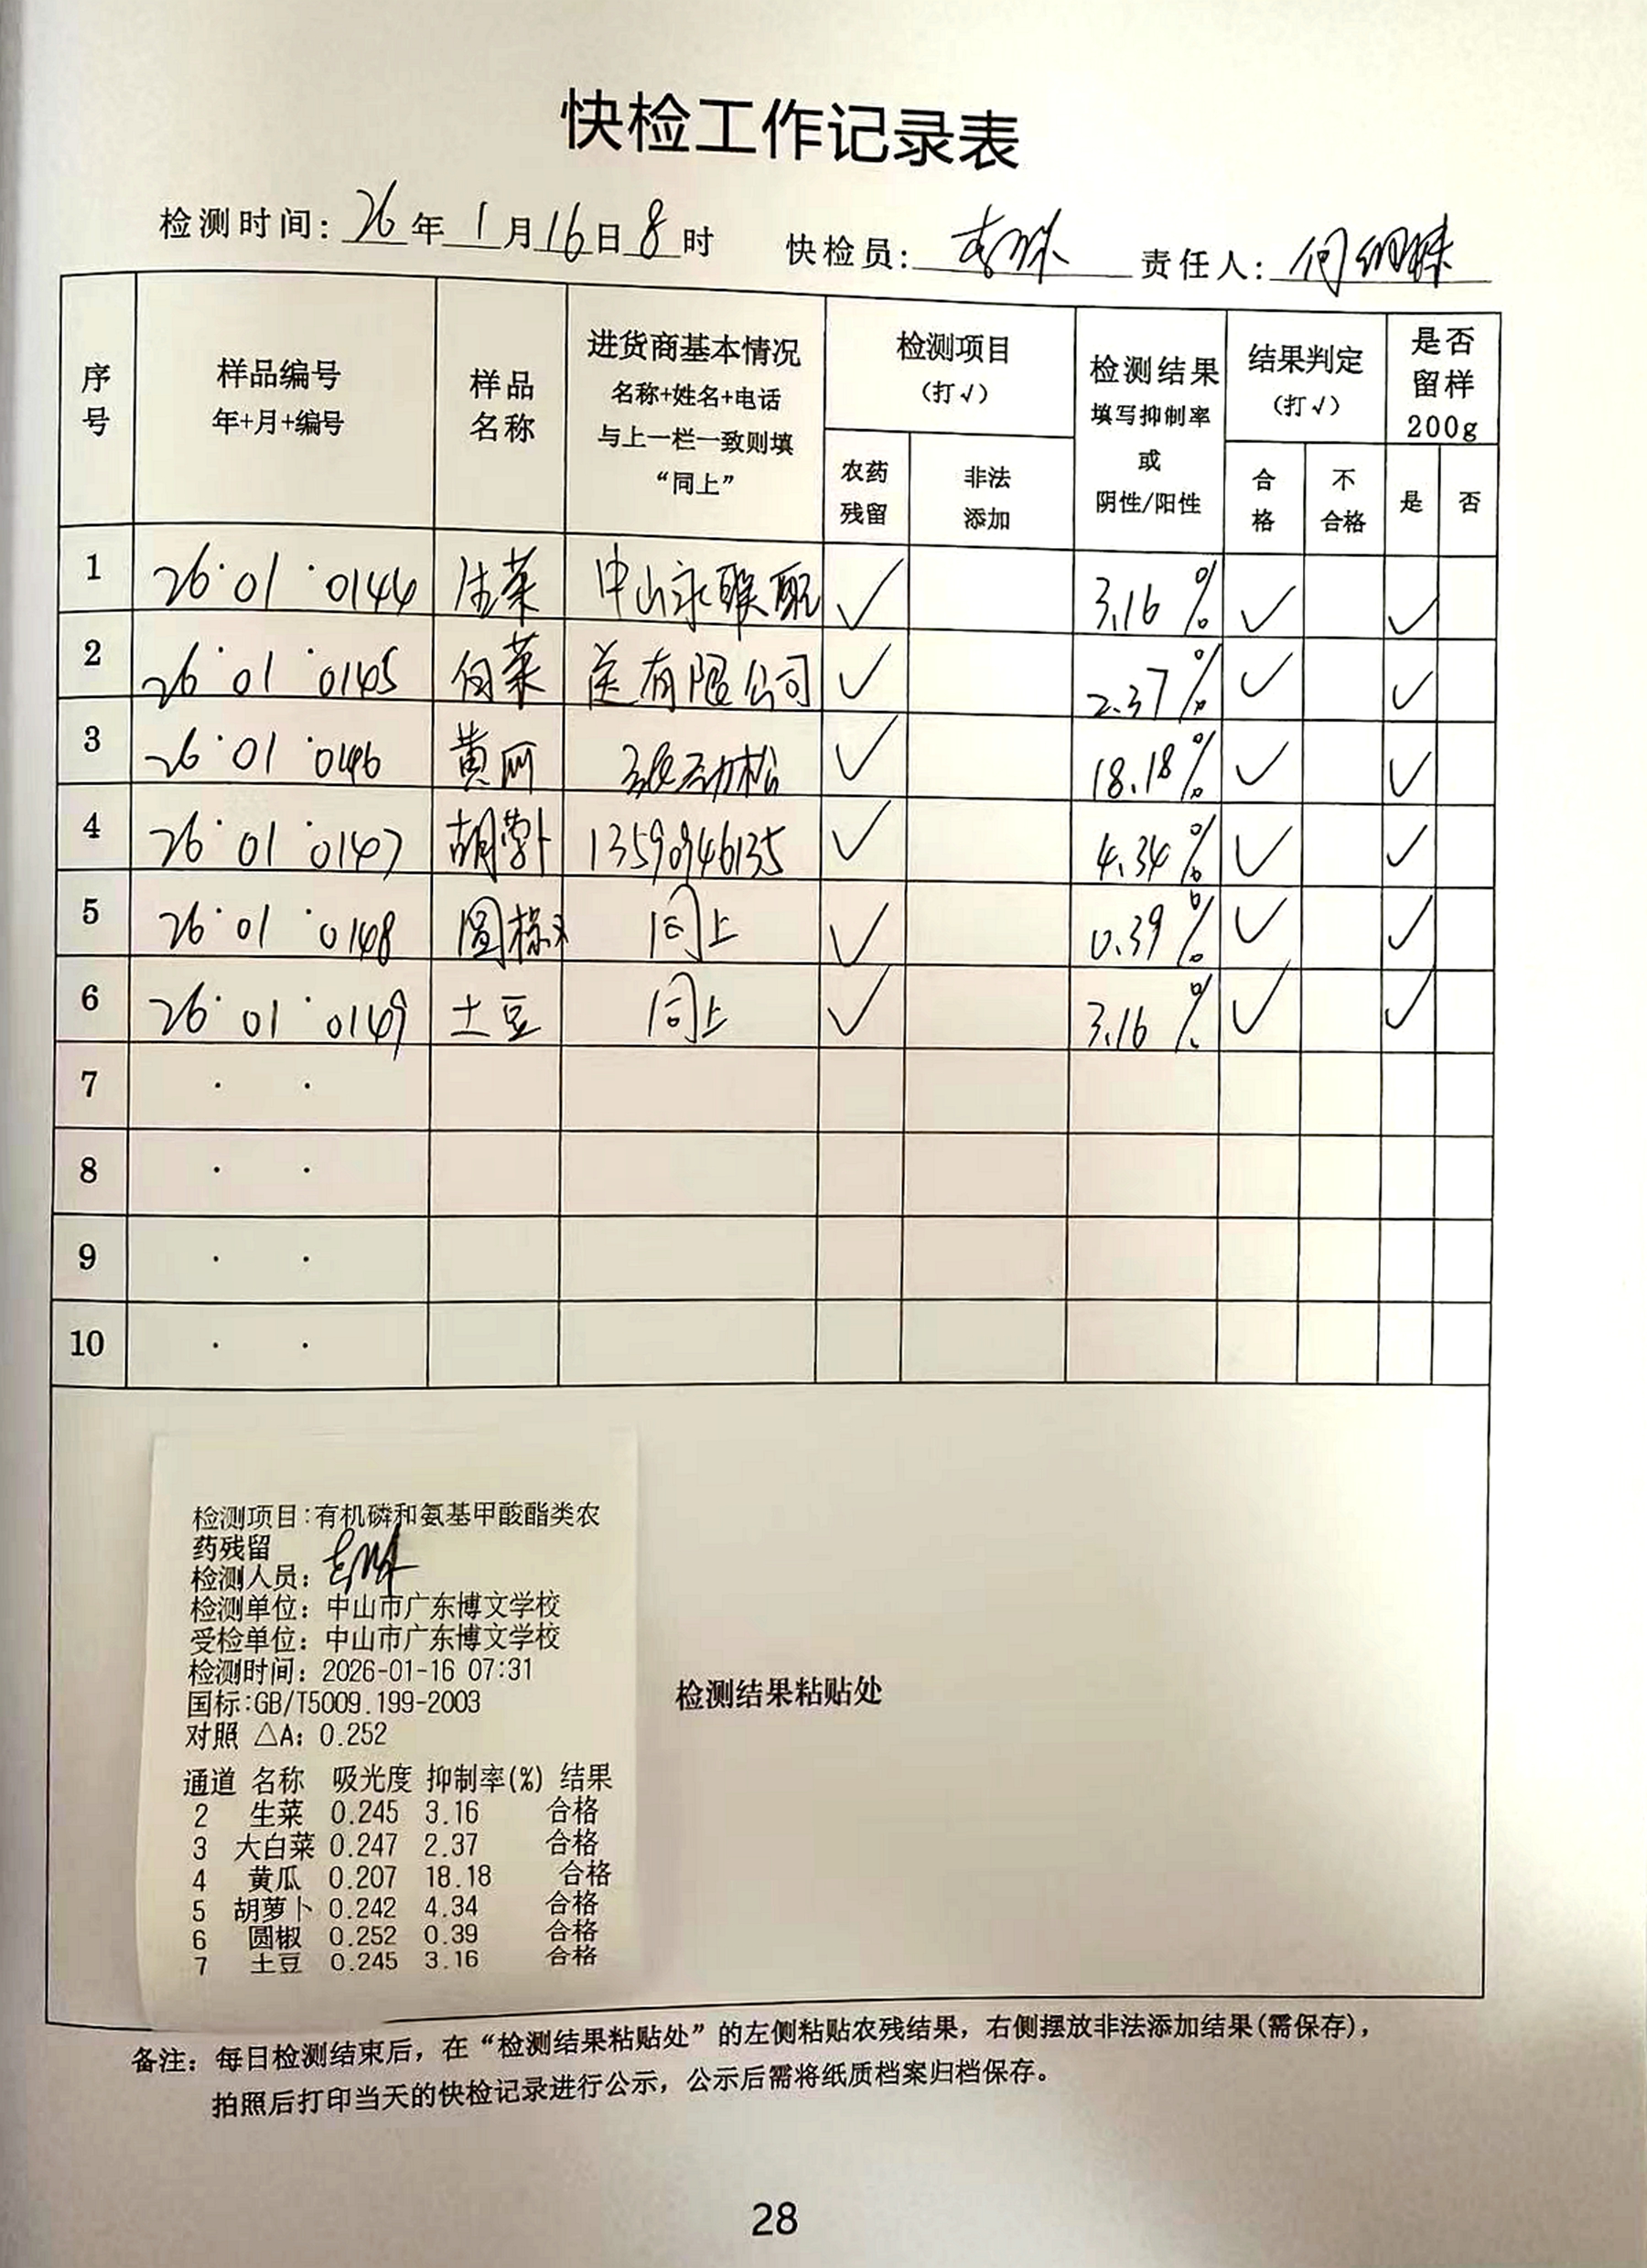 快检工作记录表
检测时间: 26年1月16日8时 快检员: 责任人: 何
序号 样品编号 年+月+编号 样品名称 进货商基本情况 名称+姓名+电话 与上一栏一致则填“同上” 检测项目 (打√) 农药残留 非法添加 检测结果 填写抑制率 或 阴性/阳性 结果判定 (打√) 合格 不合格 是否留样200g 是 否
1 26·01·0144 生菜 中山永联配 √ 3.16% √ √
2 26·01·0145 白菜 送有限公司 √ 2.37% √ √
3 26·01·0146 黄瓜 √ 18.18% √ √
4 26·01·0147 胡萝卜 13590946135 √ 4.34% √ √
5 26·01·0148 圆椒 同上 √ 0.39% √ √
6 26·01·0149 土豆 同上 √ 3.16% √ √
7 · ·
8 · ·
9 · ·
10 · ·
检测项目:有机磷和氨基甲酸酯类农
药残留
检测人员:
检测单位: 中山市广东博文学校
受检单位: 中山市广东博文学校
检测时间: 2026-01-16 07:31
国标:GB/T5009.199-2003
对照 △A: 0.252
通道 名称 吸光度 抑制率(%) 结果
2 生菜 0.245 3.16 合格
3 大白菜 0.247 2.37 合格
4 黄瓜 0.207 18.18 合格
5 胡萝卜 0.242 4.34 合格
6 圆椒 0.252 0.39 合格
7 土豆 0.245 3.16 合格
检测结果粘贴处
备注: 每日检测结束后，在“检测结果粘贴处”的左侧粘贴农残结果，右侧摆放非法添加结果(需保存)，
拍照后打印当天的快检记录进行公示，公示后需将纸质档案归档保存。
28